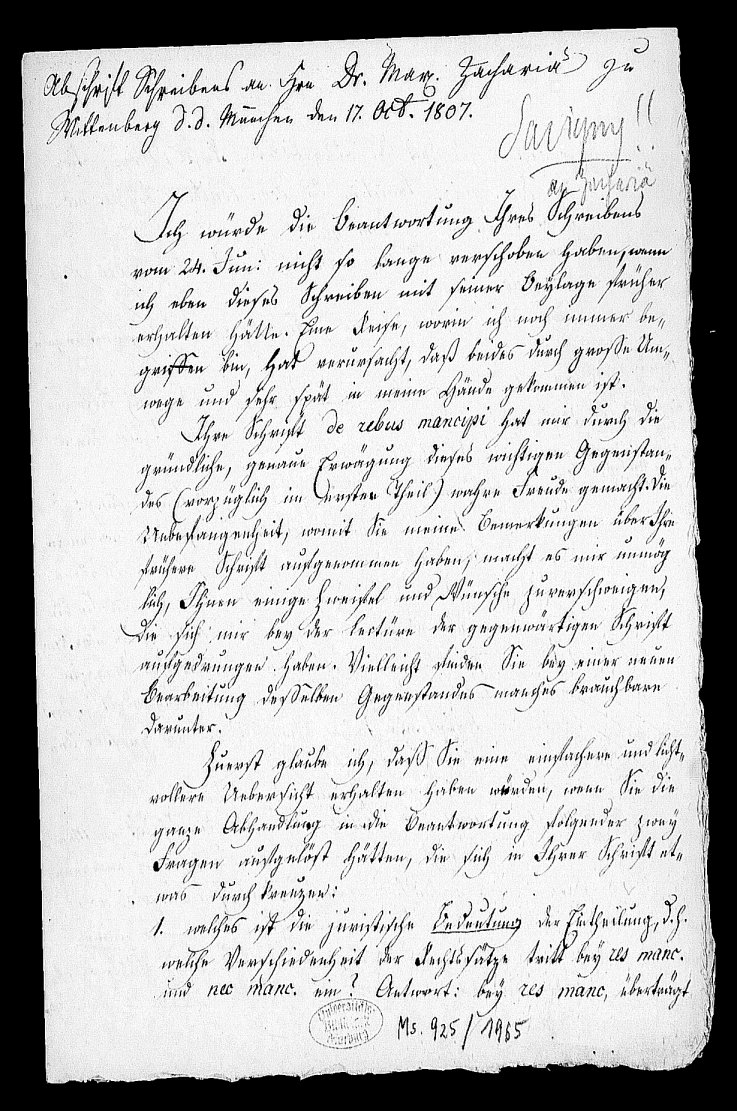 Abschrift Schreibens an Hrn Dr. Max. Zachariä zu
Wittenberg d. d. München den 17. Oct. 1807.
Savigny!!
an Zachariä
Ich würde die Beantwortung Ihres Schreibens
vom 24. Jun: nicht so lange verschoben haben, wenn
ich eben dieses Schreiben mit seiner Beylage früher
erhalten hätte. Eine Reise, worin ich noch immer be„
griffen bin, hat verursacht, daß beides durch große Um„
wege und sehr spät in meine Hände gekommen ist.
Ihre Schrift de rebus mancipi hat mir durch die
gründliche, genaue Erwägung dieses wichtigen Gegenstan„
des (vorzüglich im ersten Theil) wahre Freude gemacht. Die
Unbefangenheit, womit Sie meine Bemerkungen über Ihre
frühere Schrift aufgenommen haben, macht es mir unmög
lich, Ihnen einige Zweifel und Wünsche zu verschweigen,
die sich mir bey der Lectüre der gegenwärtigen Schrift
aufgedrungen haben. Vielleicht finden Sie bey einer neuen
Bearbeitung desselben Gegenstandes manches brauchbare
darunter.
Zuerst glaube ich, daß Sie eine einfachere und licht„
vollere Uebersicht erhalten haben würden, wenn Sie die
ganze Abhandlung in die Beantwortung folgender zwey
Fragen aufgelöst hätten, die sich in Ihrer Schrift et„
was durchkreuzen:
1. welches ist die juristische Bedeutung der Eintheilung, d. h.
welche Verschiedenheit der Rechtssätze tritt bey res manc.
und nec manc. ein? Antwort: bey res manc. überträgt
Universitäts
Bibliothek
Marburg
Ms. 925/1965